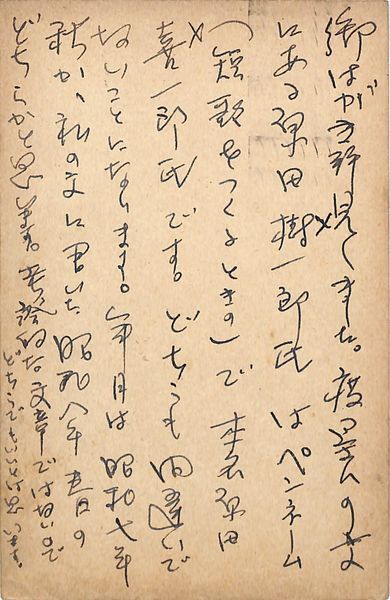 御はがき拝見しました。の文
にある原田樹一郎氏はペンネーム
(短歌をつくるときの)で 本名原田
喜一郎氏です。どちらも間違いで
ないことになります。年月は昭和七年
秋か、私の文に書いた昭和八年春の
どちらかと思います。考證的な文章ではないので
どちらでもいいとは思います。